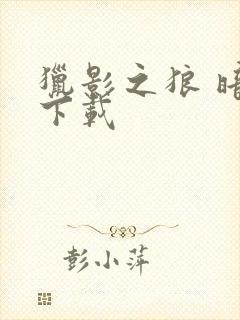 獵影之狼 暗
下載
彭小萍